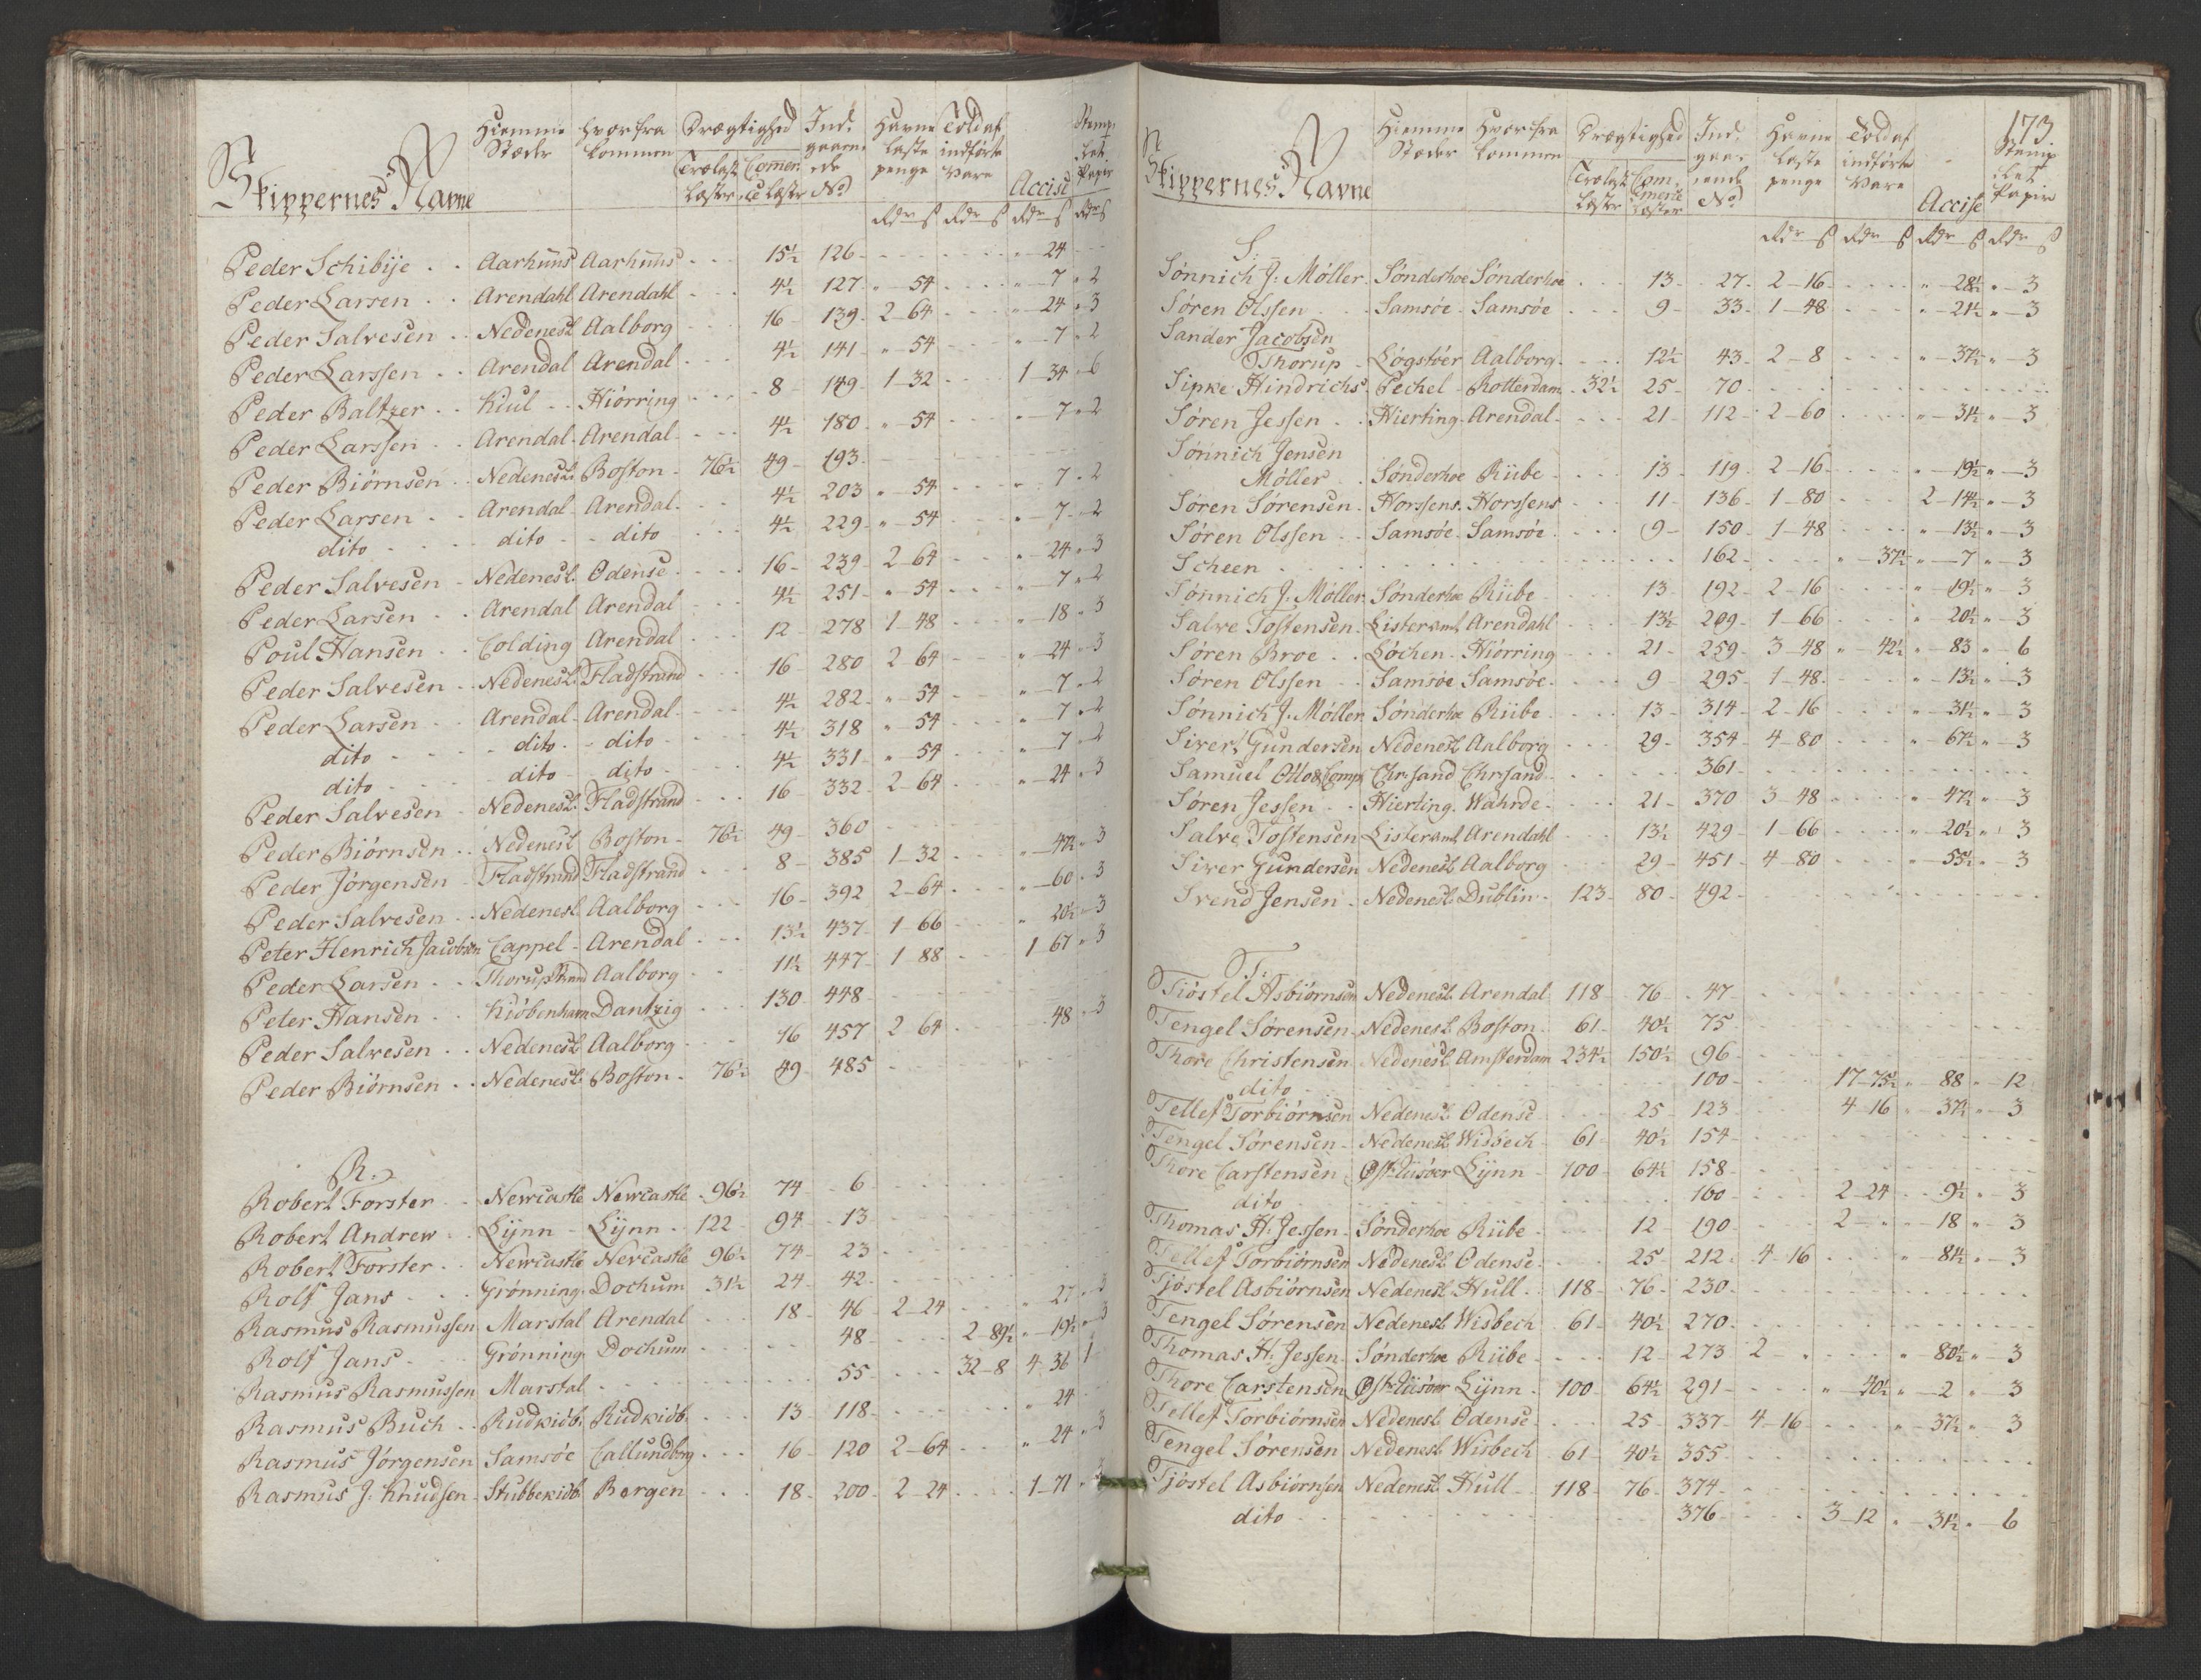 Skippernes Navne | Hiemme Stæder | hvorfra kommen | Drægtighed Trælast Læster | Comerce Læster | Ind gaaende No | Havne laste penge | Told af indførte Vare | Accise | Stemplet Papir
Rdr ß Rdr ß Rdr ß Rdr ß
Peder Schibije Aarhuus Aarhuus 15½ 126 " 24
Peder Larsen Arendahl Arendahl 4½ 127 " 54 " 7 " 2
Peder Salvesen Nedenesl. Aalborg 16 139 2-64 " 24 " 3
Peder Larssen Arendal Arendal 4½ 141 " 54 " 7 " 2
Peder Baltzer Kiul Hiörring 8 149 1-32 1-34 " 6
Peder Larssen Arendal Arendal 4½ 180 " 54 " 7 " 2
Peder Biörnsen Nedenesl. Boston 76½ 49 193
Peder Larsen Arendal Arendal 4½ 203 " 54 " 7 " 2
dito dito dito 4½ 229 " 54 " 7 " 2
Peder Salvesen Nedenesl. Odense 16 239 2-64 " 24 " 3
Peder Larsen Arendal Arendal 4½ 251 " 54 " 7 " 2
Poul Hansen Colding Arendal 12 278 1-48 " 18 " 3
Peder Salvesen Nedenesl. Fladstrand 16 280 2-64 " 24 " 3
Peder Larsen Arendal Arendal 4½ 282 " 54 " 7 " 2
dito dito dito 4½ 318 " 54 " 7 " 2
dito dito dito 4½ 331 " 54 " 7 " 2
Peder Salvesen Nedenesl. Fladstrand 16 332 2-64 " 24 " 3
Peder Biörnsen Nedenesl Boston 76½ 49 360
Peder Jörgensen Fladstrand Fladstrand 8 385 1-32 " 47½ " 3
Peder Salvesen Nedenesl. Aalborg 16 392 2-64 " 60 " 3
Peter Henrich Jacobsen Cappel Arendal 13½ 437 1-66 " 20½ " 3
Peder Larsen Thorup Strand Aalborg 11½ 447 1-88 1-67 " 3
Peter Hansen Kiöbenhavn Dantzig 130 448
Peder Salvesen Nedenesl Aalborg 16 457 2-64 48 " 3
Peder Biörnsen Nedenesl. Boston 76½ 49 485
R.
Robert Forster Newcastle Newcastle 96½ 74 6
Robert Andrew Lÿnn Lÿnn 122 94 13
Robert Forster Newcastle Newcastle 96½ 74 23
Rolf Jans Grönning. Dochum 31½ 24 42
Rasmus Rasmussen Marstal Arendal 18 46 2-24 " 27 " 3
Rolf Jans Grönning. Dochum 48 2-89½ " 19½ " 3
Rasmus Rasmussen Marstal 55 32-8 4-36 1
Rasmus Buch Rudkiöb. Rudkiöb. 13 118 " 24
Rasmus Jörgensen Samsöe Callundborg 16 120 2-64 " 24 " 3
Rasmus J. Knudsen Stubbekiöb. Bergen 18 200 2-24 1-71 " 3
173
Skippernes Navne | Hiemme Stæder | Hvorfra kommen | Drægtighed Trælast Læster | Commerce Læster | Ind gaaende No | Havne laste penge | Told af indførte Vare | Accise | Stemplet Papir
Rdr ß Rdr ß Rdr ß Rdr ß
S.
Sönnich J. Möller Sönderhoe Sönderhoe 13 27 2-16 " 28½ " 3
Sören Olssen Samsöe Samsöe 9 33 1-48 " 21½ " 3
Sander Jacobsen
Thorup Lögstöer Aalborg 12½ 43 2-8 " 37½ " 3
Sipke Hindrichs Peckel Rotterdam 32½ 25 70
Sören Jessen Hierting Arendal 21 112 2-60 " 31½ " 3
Sönnich Jensen
Möller Sönderhoe Riibe 13 119 2-16 " 19½ " 3
Sören Sörensen Horssens Horssens 11 136 1-80 2-14½ " 3
Sören Olssen Samsöe Samsöe 9 150 1-48 " 13½ " 3
Scheen 162 " 37½ " 7 " 3
Sönnich J. Möller Sönderhoe Riibe 13 192 2-16 " 19½ " 3
Salve Tostensen Lister amt Arendahl 13½ 209 1-66 " 20½ " 3
Sören Broe Löchen Hiörring 21 259 3-48 " 42½ " 83 " 6
Sören Olssen Samsöe Samsöe 9 295 1-48 " 13½ " 3
Sönnich J. Möller Sönderhoe Riibe 13 314 2-16 " 31½ " 3
Sivert Gundersen Nedenesl. Aalborg 29 354 4-80 " 67½ " 3
Samuel Otto & Comp. Chrsand Chrsand 361
Sören Jessen Hierting Wahrde 21 370 3-48 " 47½ " 3
Salve Tostensen Lister amt Arendahl 13½ 429 1-66 " 20½ " 3
Siver Gundersen Nedenesl Aalborg 29 451 4-80 " 55½ " 3
Svend Jensen Nedenesl. Dublin 123 80 492
T.
Tiöstel Asbiörnsen Nedenesl. Arendal 118 76 47
Tengel Sörensen Nedenesl. Boston 61 40½ 75
Thore Christensen Nedenesl. Amsterdam 234½ 150½ 96
dito 100 17-75½ " 88 " 12
Tellef Torbiörnsen Nedenesl. Odense 25 123 4-16 " 37½ " 3
Tengel Sörensen Nedenesl. Wisbech 61 40½ 154
Thore Carstensen Öst-Riisöer Lÿnn 100 64½ 158
dito 160 2-24 9½ " 3
Thomas H. Jessen Sönderhoe Riibe 12 190 2 " 18 " 3
Tellef Torbiörnsen Nedenesl Odense 25 212 4-16 " 81½ " 3
Tjöstel Asbiörnsen Nedenesl. Hull 118 76 230
Tengel Sörensen Nedenesl. Wisbech 61 40½ 270
Thomas H. Jessen Sönderhoe Riibe 12 273 2 " " 80½ " 3
Thore Carstensen Öst-Riisöer Lÿnn 100 64½ 291 " 40½ " 2 " 3
Tellef Torbiörnsen Nedenesl. Odense 25 337 4-16 " 37½ " 3
Tengel Sörensen Nedenesl. Wisbech 61 40½ 355
Tjöstel Asbiörnsen Nedenesl. Hull 118 76 374
dito 376 3-12 " 31½ " 6